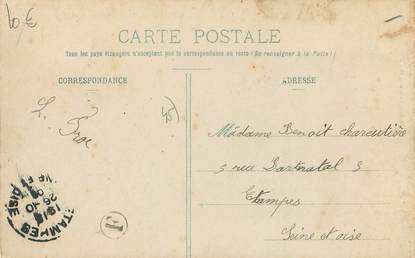 10 €
CARTE POSTALE
Tous les pays étrangers n'acceptent pas la correspondance au recto (Se renseigner à la Poste)
CORRESPONDANCE
ADRESSE
L.
45
Madame Benoit charcutière
5 rue 5
Etampes
Seine et oise
E
ETAMPES